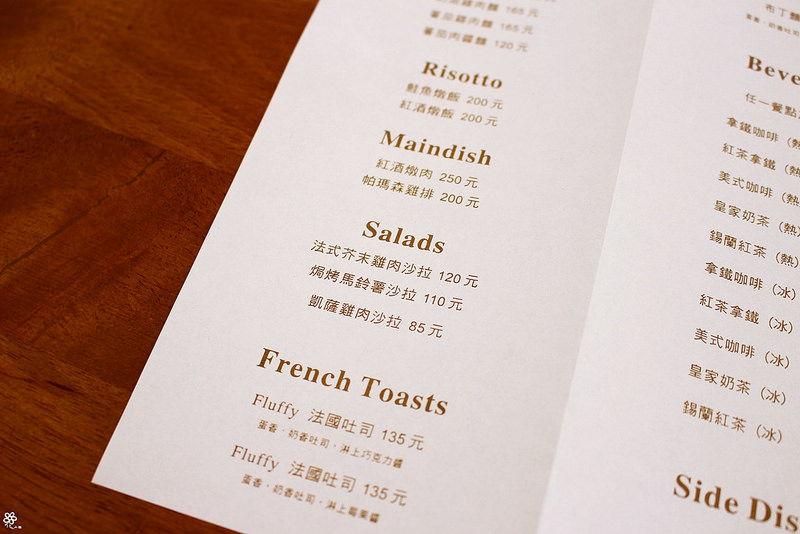 茄雞肉麵 165元
蕃茄雞肉麵 165元
蕃茄肉醬麵 120元
Risotto
鮭魚燉飯 200元
紅酒燉飯 200元
Maindish
紅酒燉肉 250元
帕瑪森雞排 200元
Salads
法式芥末雞肉沙拉 120元
焗烤馬鈴薯沙拉 110元
凱薩雞肉沙拉 85元
French Toasts
Fluffy 法國吐司 135元
蛋香・奶香吐司・淋上巧克力醬
Fluffy 法國吐司 135元
蛋香・奶香吐司・淋上莓果醬
布丁
蛋香・奶香吐司
Beve
任一餐點
拿鐵咖啡（熱
紅茶拿鐵（熱
美式咖啡（熱
皇家奶茶（熱）
錫蘭紅茶（熱）
拿鐵咖啡（冰
紅茶拿鐵（冰）
美式咖啡（冰）
皇家奶茶（冰）
錫蘭紅茶（冰）
Side Dis